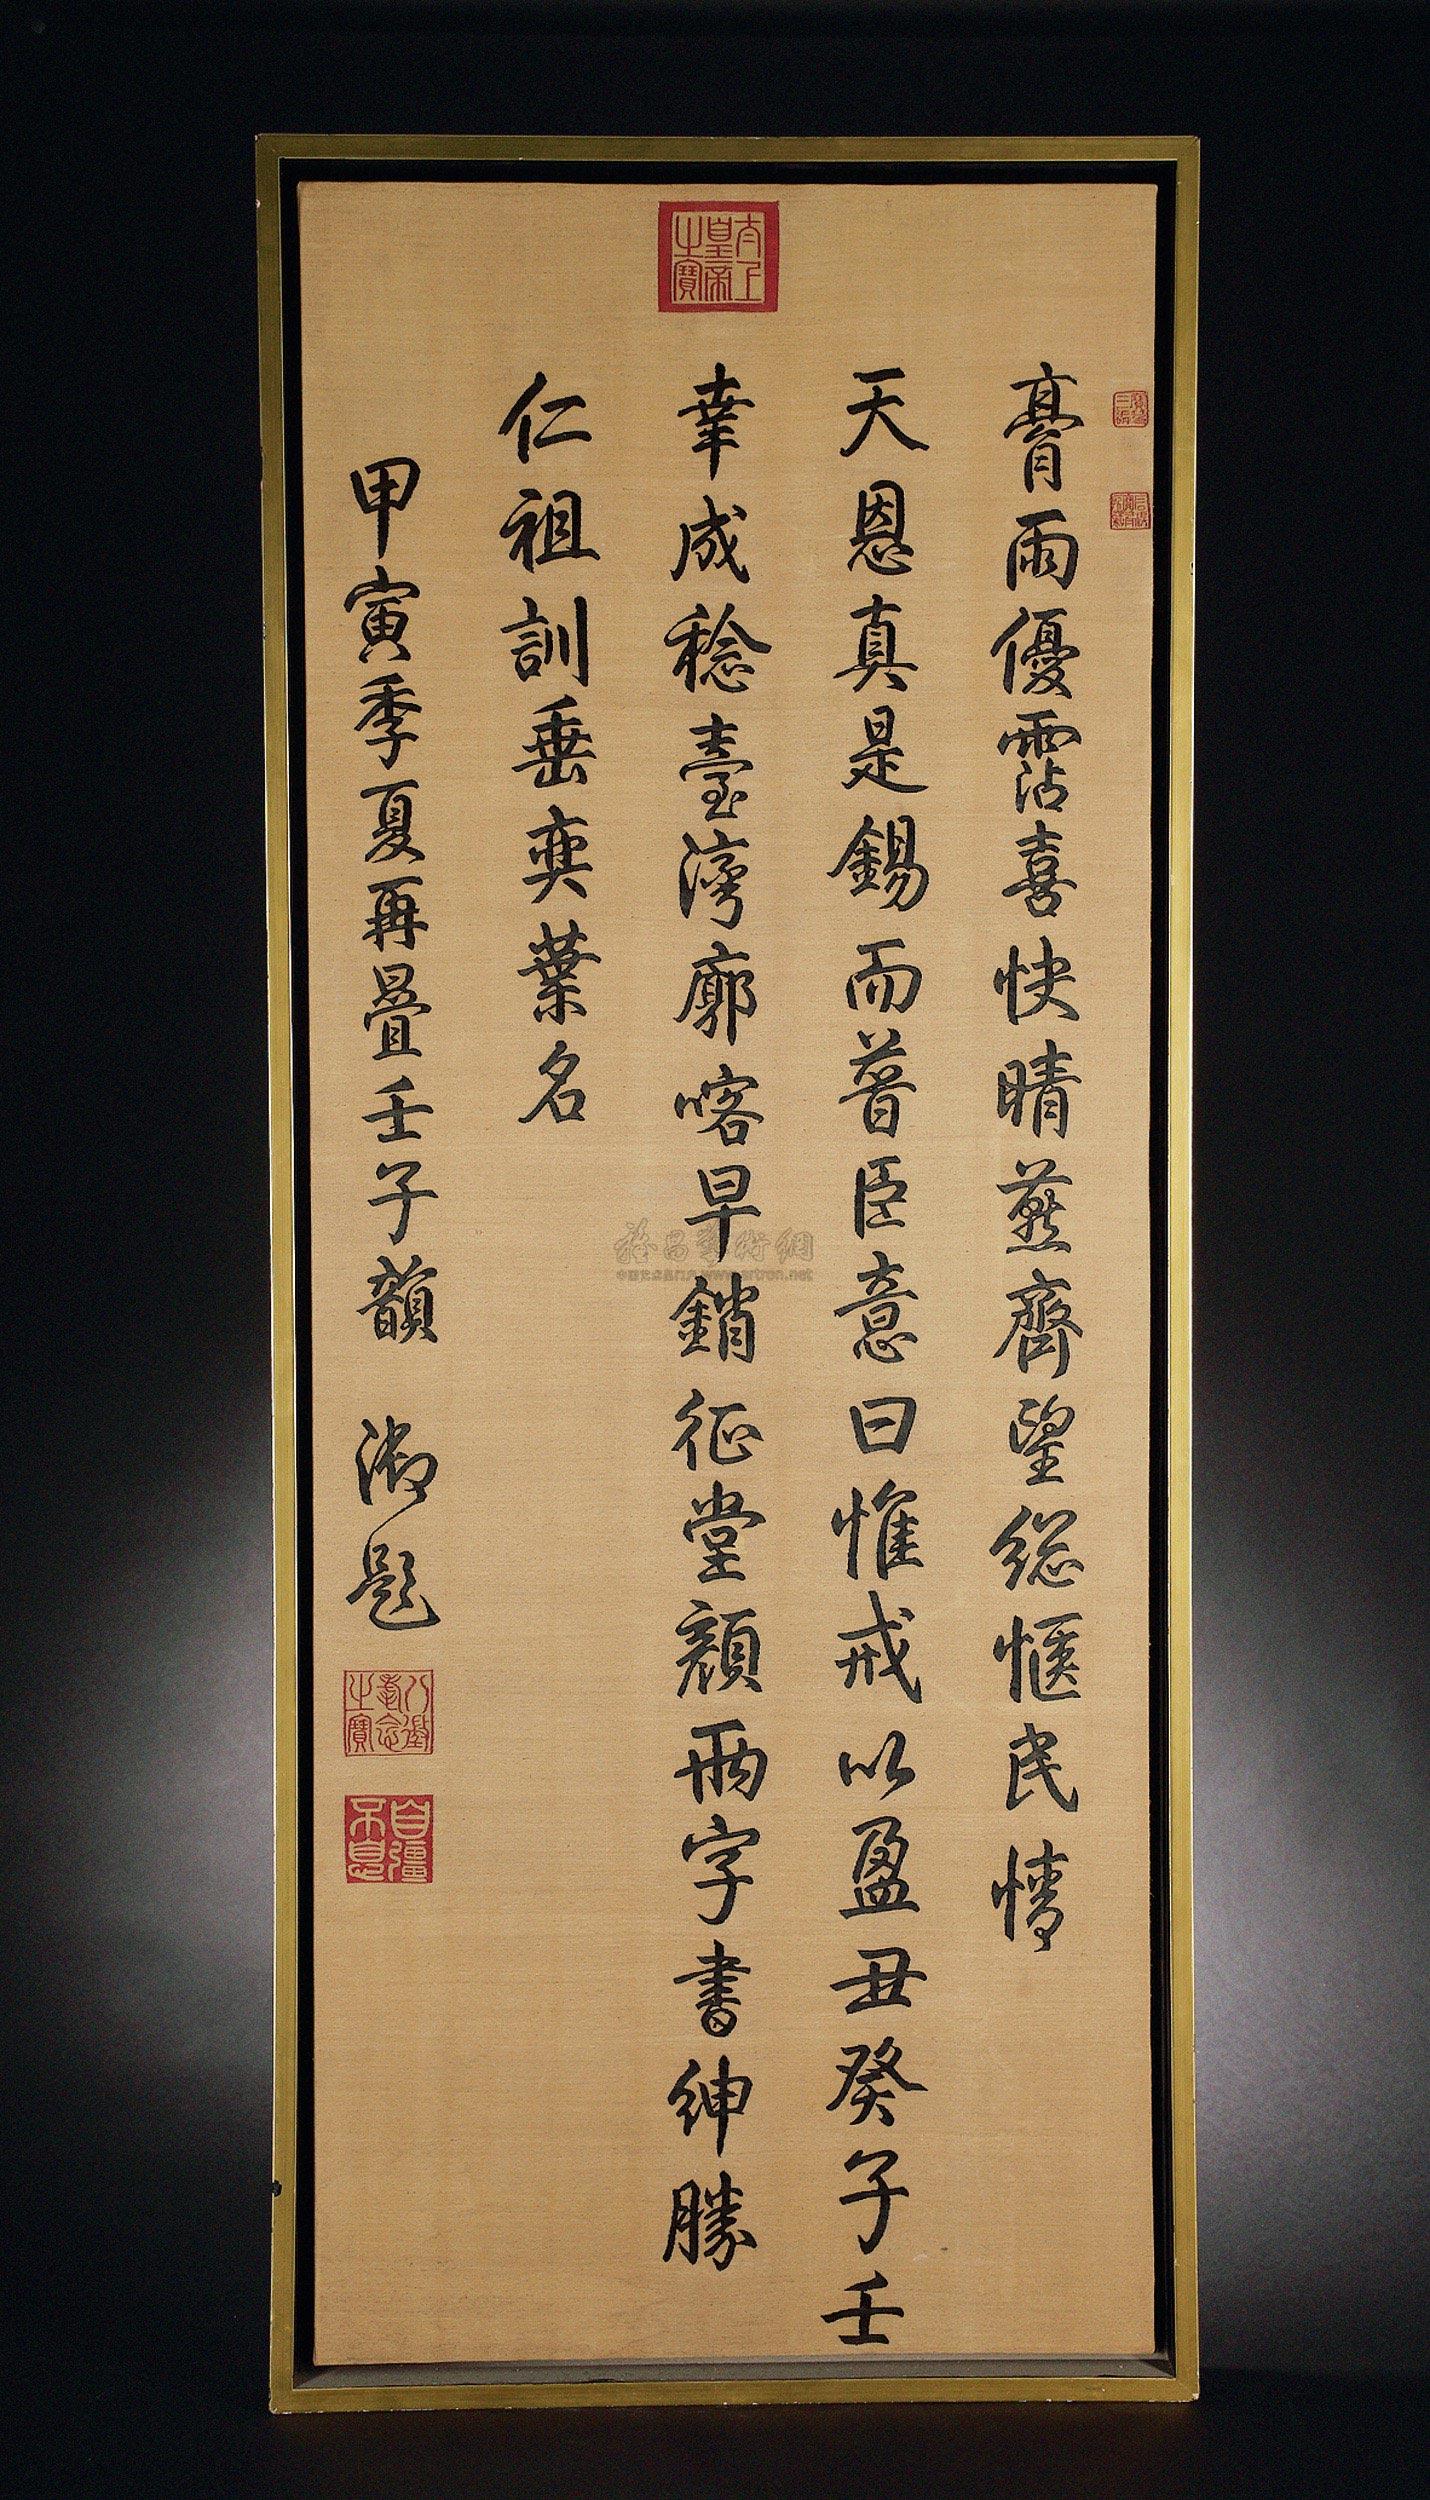 膏雨優霑喜快晴蒸齊望總愜民情
天恩真是錫而普臣意曰惟戒以盈丑癸子壬
幸成稔臺灣廓喀早銷征堂顏兩字書紳勝
仁祖訓垂奕葉名
甲寅季夏再疊壬子韻 御題
太上皇帝之寶
八徵耄念之寶
自彊不息
雅昌藝術網
www.artron.net